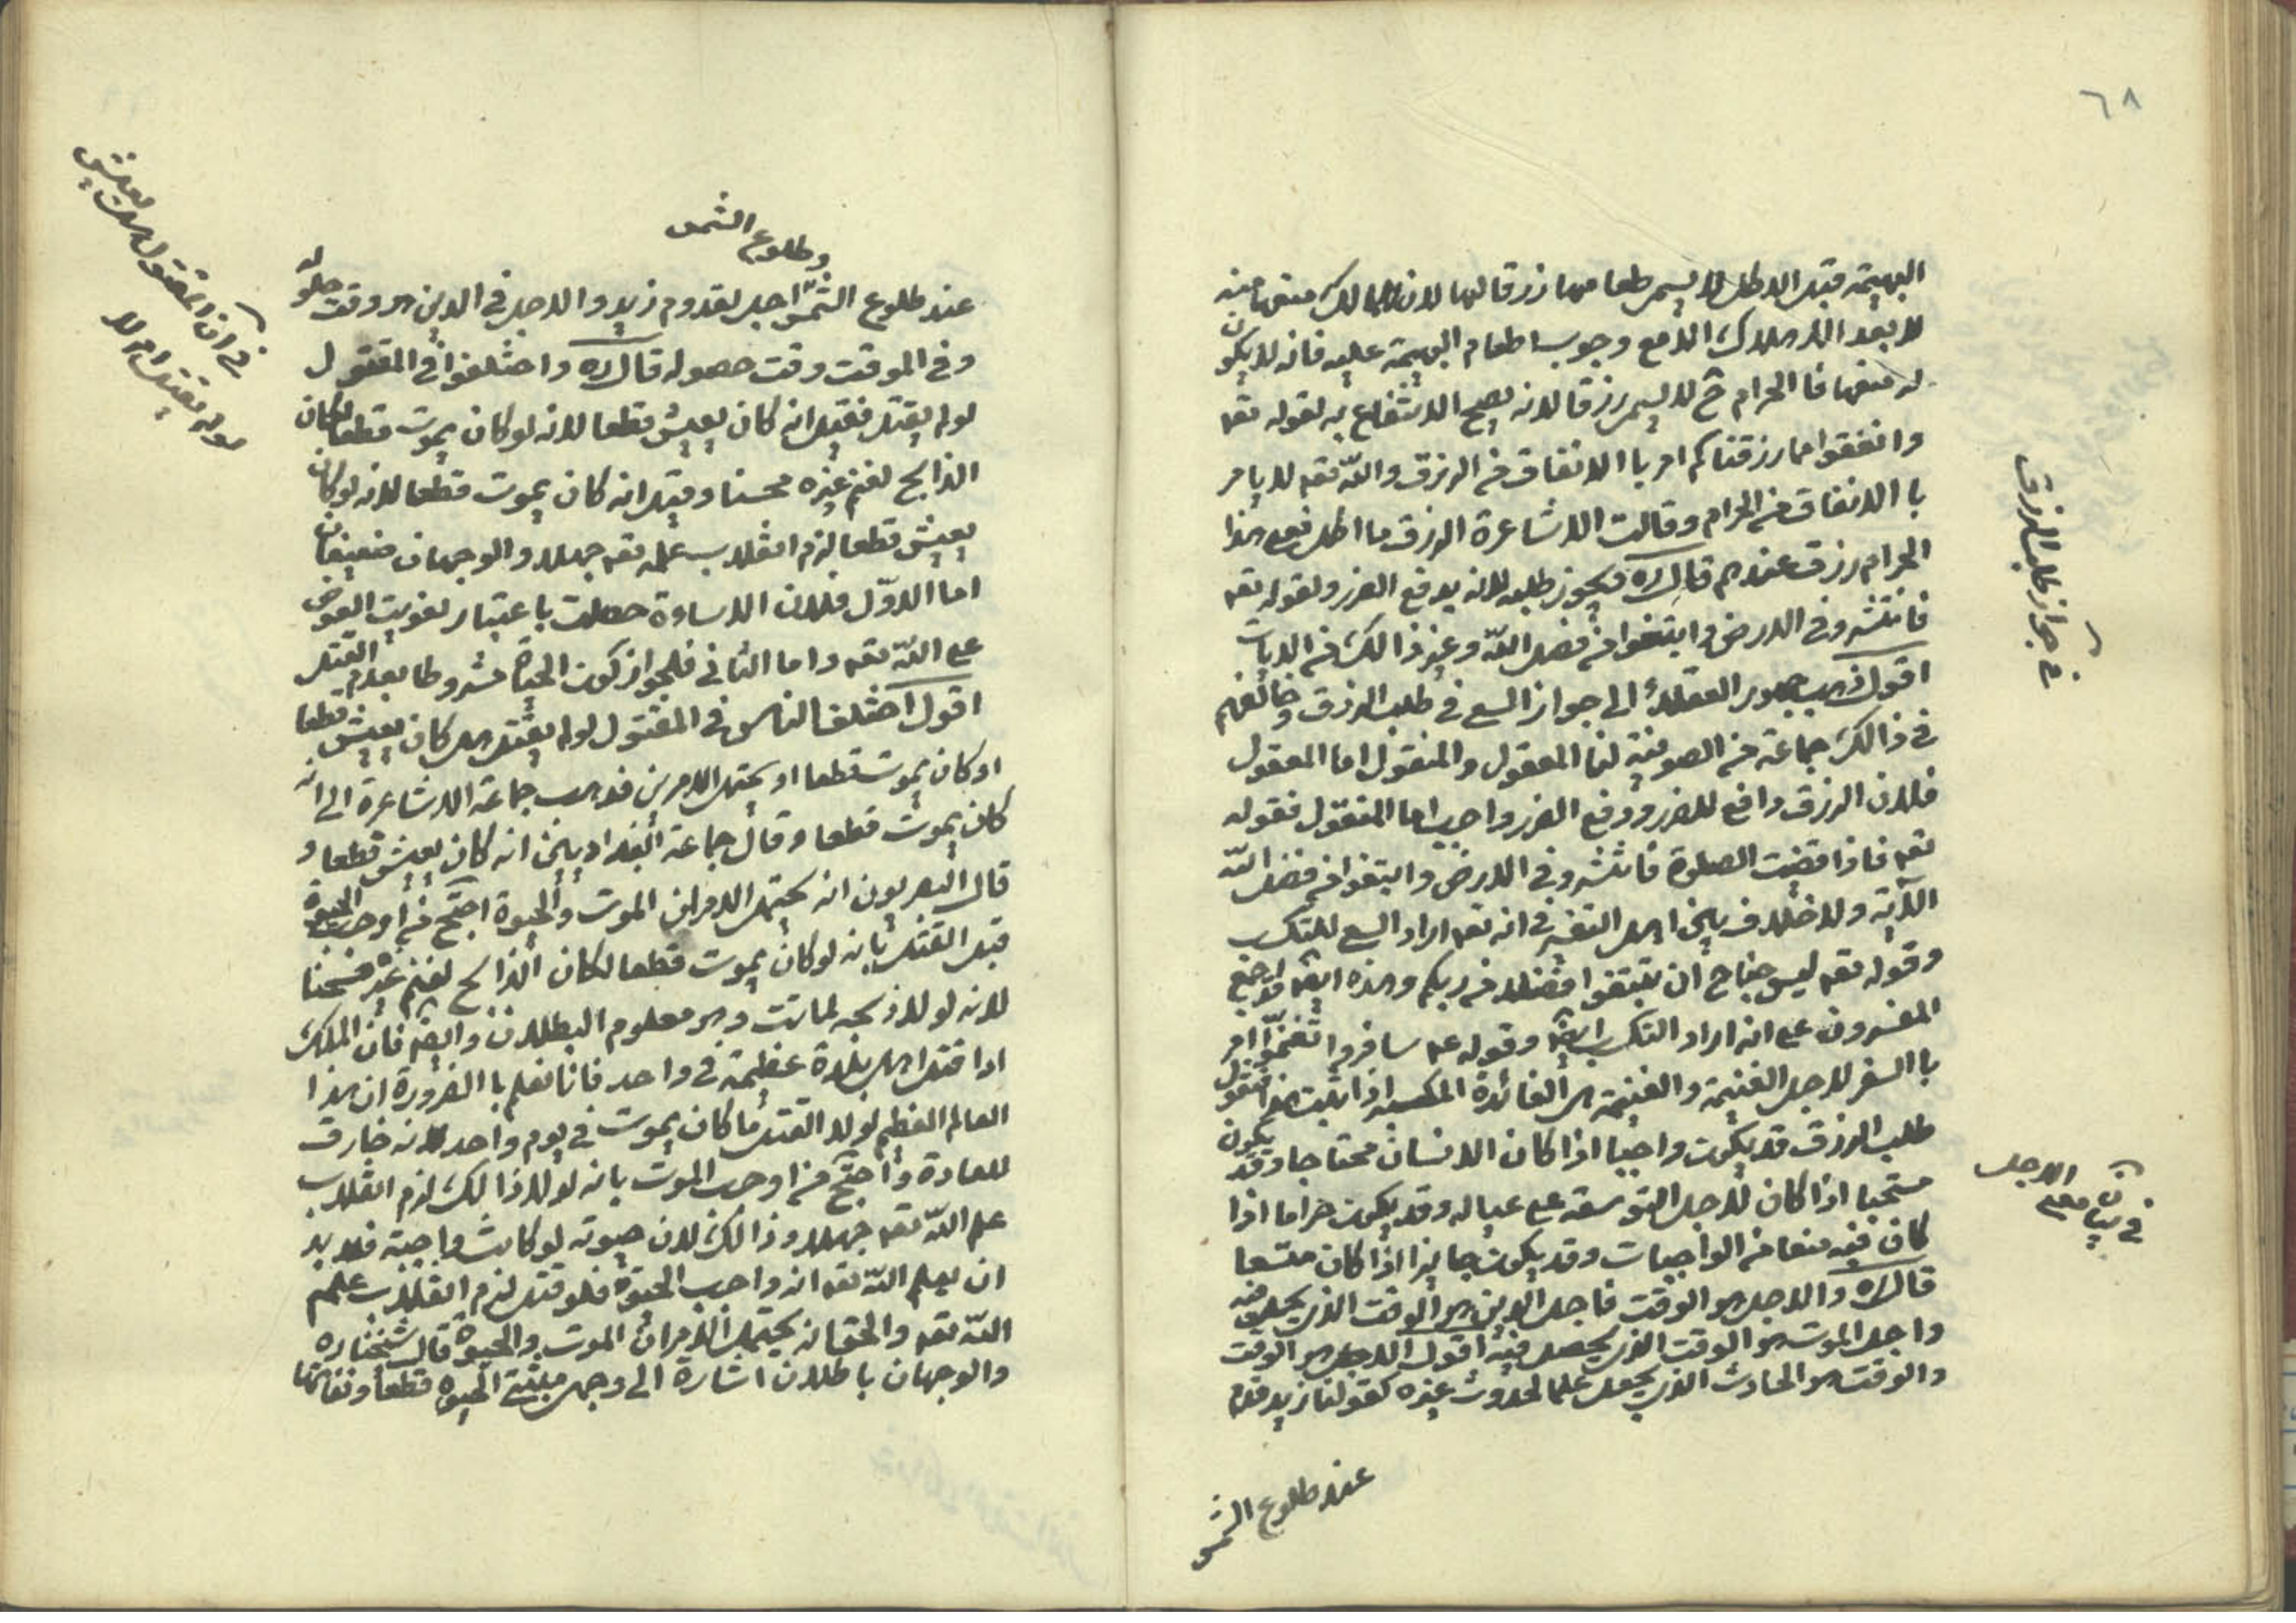 ٦٨
البهيمة قبل الاكل لا يسمى طعامها رزقا لها لان للمالك منعها منه
لا بعد الاستهلاك الا مع وجوب اطعام البهيمة عليه فانه لا يكون
له منعها فا الحرام ح لا يسمى رزقا لانه يصح الانتفاع به لقوله تعه
وانفقوا مما رزقناكم امر با الانفاق من الرزق والله تعه لا يامر
با الانفاق من الحرام وقالت الاشاعرة الرزق ما اكل فعلى هذا
الحرام رزق عندهم قال ره ويجوز طلبه لانه يدفع الضرر ولقوله تعه
فانتشروفى الارض وابتغوا من فضل الله وغير ذالك من الايات
اقول ذهب جمهور العقلاء الى جواز السعى فى طلب الرزق وخالفهم
فى ذالك جماعة من الصوفية لنا المعقول والمنقول اما المعقول
فلان الرزق دافع للضرر ودفع الضرر واجب اما المنقول فقوله
تعه فاذا قضيت الصلوة فانتشروفى الارض وابتغوا من فضل الله
الآية ولا خلاف بين اهل التفسير فى انه تعه اراد السعى للتكسب
وقوله تعه ليس جناح ان تبتغوا فضلا من ربكم وهذه ايضه قد اجمع
المفسرون على انه اراد التكسب ايضه وقوله عه سافروا تغنموا امر
با السفر لاجل الغنيمة والغنيمة هى الفائدة المكتسبة اذا ثبت هذا فنقول
طلب الرزق قد يكون واجبا اذا كان الانسان محتاجا وقد يكون
مستحبا اذا كان لاجل التوسعة على عياله وقد يكون حراما اذا
كان فيه منعا من الواجبات وقد يكون جايزا اذا كان متسعا
قال ره والاجل هو الوقت فاجل الدين هو الوقت الذى يحل فيه
واجل الموت هو الوقت الذى يحصل فيه اقول الاجل هو الوقت
والوقت هو الحادث الذى يجعل علما لحدوث غيره كقولنا زيد قدم
عند طلوع الشمس
فى جواز طلب الرزق
فى بيان معنى الاجل
وطلوع الشمس
عند طلوع الشمس اجل لقدوم زيد والاجل فى الدين هو وقت حلوله
وفى الموقت وقت حصوله قال ره واختلفوا فى المقتول
لو لم يقتل فقيل انه كان يعيش قطعا لانه لو كان يموت قطعا لكان
الذابح لغنم غيره محسنا وقيل انه كان يموت قطعا لانه لو كان
يعيش قطعا لزم انقلاب علمه تعه جهلا والوجهان ضعيفان
اما الاول فلان الاساءة حصلت باعتبار تفويت العوض
على الله تعه واما الثانى فلجواز كون الحياة مشروطا بعدم القتل
اقول اختلف الناس فى المقتول لو لم يقتل هل كان يعيش قطعا
او كان يموت قطعا او يحتمل الامرين فذهب جماعة الاشاعرة الى انه
كان يموت قطعا وقال جماعة البغداديين انه كان يعيش قطعا و
قال البصريون انه يحتمل الامران الموت والحيوة احتج من اوجب الحيوة
قبل القتل بانه لو كان يموت قطعا لكان الذابح لغنم غيره محسنا
لانه لولا ذبحه لماتت وهو معلوم البطلان وايضه فان الملك
اذا قتل اهل بلدة عظيمة فى واحد فانا نعلم با الضرورة ان هذا
العالم العظيم لولا القتل ما كان يموت فى يوم واحد لانه خارق
للعادة واحتج من اوجب الموت بانه لولا ذالك لزم انقلاب
علم الله تعه جهلا وذالك لان حيوته لو كانت واجبة فلا بد
ان يعلم الله تعه انه واجب الحيوة فلو قتل لزم انقلاب علمه
الله تعه والحق انه يحتمل الامران الموت والحيوة قال شيخنا ره
والوجهان باطلان اشارة الى وجهى مثبتى الحيوة قطعا ونفاتها
فى ان المقتول هل يعيش
لو لم يقتل ام لا